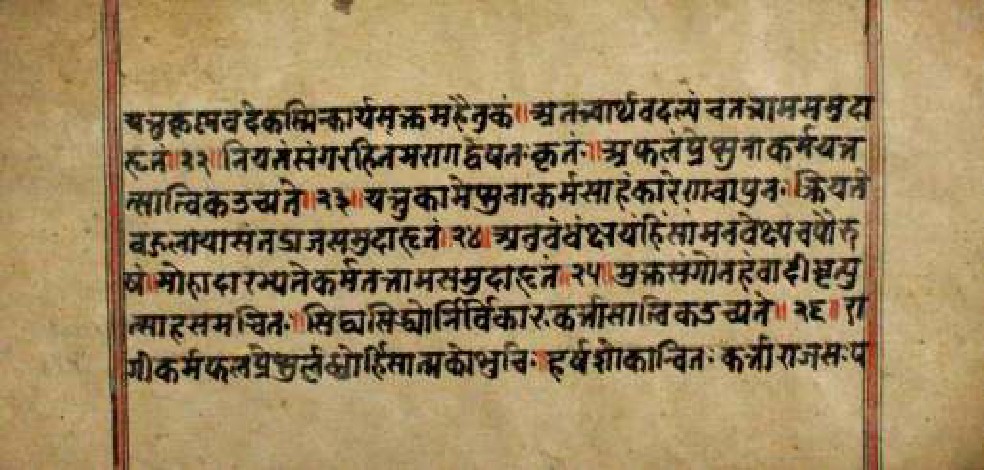 यत्तुकृत्स्नवदेकस्मिन्कार्यमसक्तमहैतुकं॥ अतत्वार्थवदल्पंचतत्तामसमुदा
हृतं॥२२॥ नियतंसंगरहितमरागद्वेषतःकृतं॥ अफलंप्रेप्सुनाकर्मयत्त
त्सात्विकउच्यते॥२३॥ यत्तुकामेप्सुनांकर्मसाहंकारेणवापुनः॥ क्रियते
बहुलायासंतद्राजसमुदाहृतं॥२४॥ अनुबंधंक्षयंहिंसांमनवेक्ष्यचपौरु
षं॥ मोहादारभ्यतेकर्मतत्तामसमुदाहृतं॥२५॥ मुक्तसंगोनहंवादीधृत्यु
त्साहसमन्वितः॥ सिद्ध्यसिद्ध्योर्निर्विकारःकर्त्तासात्विकउच्यते॥२६॥ रा
गीकर्मफलप्रेप्सुर्लुब्धोहिंसात्मकोशुचिः॥ हर्षशोकान्वितःकर्त्ताराजसःप